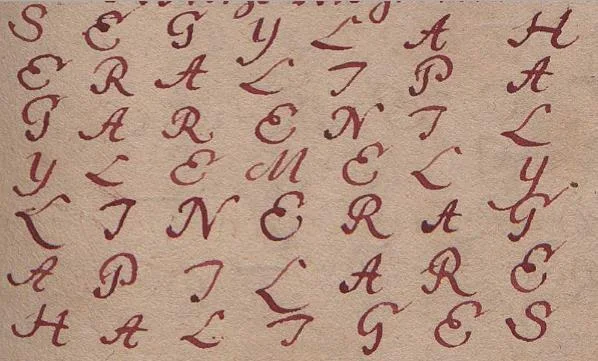 S E G Y L A H
E R A L I P A
G A R E N I L
Y L E M E L Y
L I N E R A G
A P I L A R E
H A L I G E S